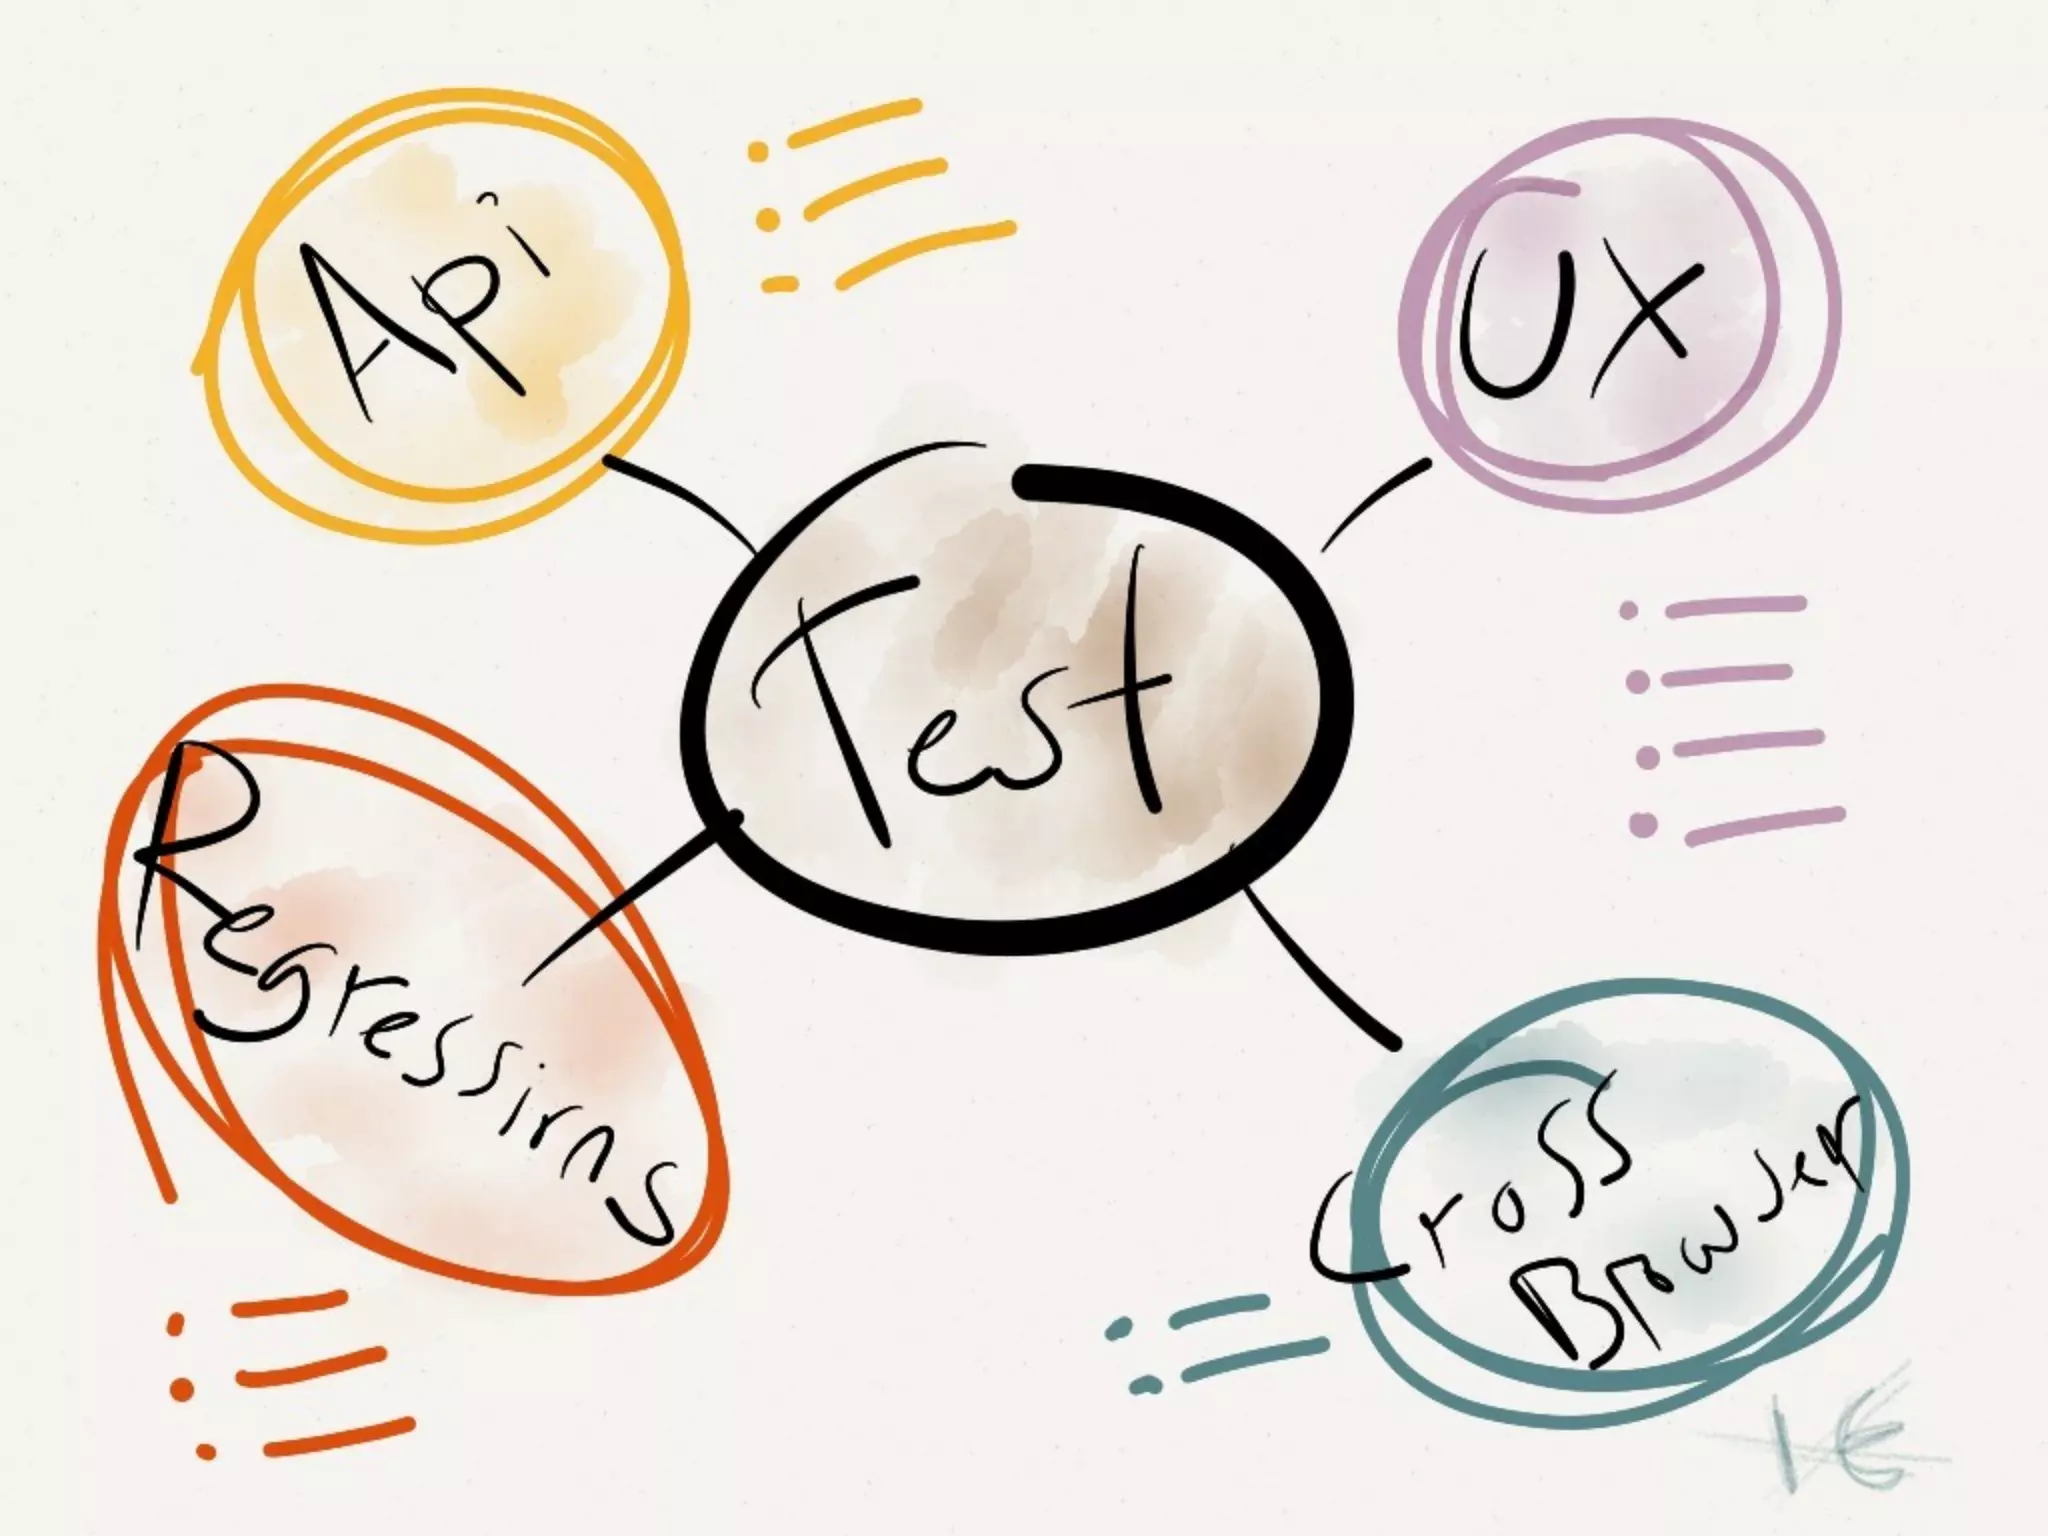 Api
UX
Test
Regressions
Cross
Browser
IE